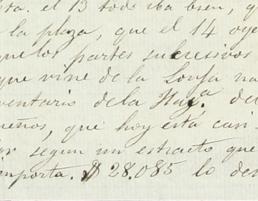 ta. el 13 todo iba bien, q
la plaza, que el 14 oye
que los partes sucesivos
que vine de la Lonja na
ventario de la Haz.ª del
eños, que hoy está casi
or segun un estracto que
importa. $ 28.085 lo des